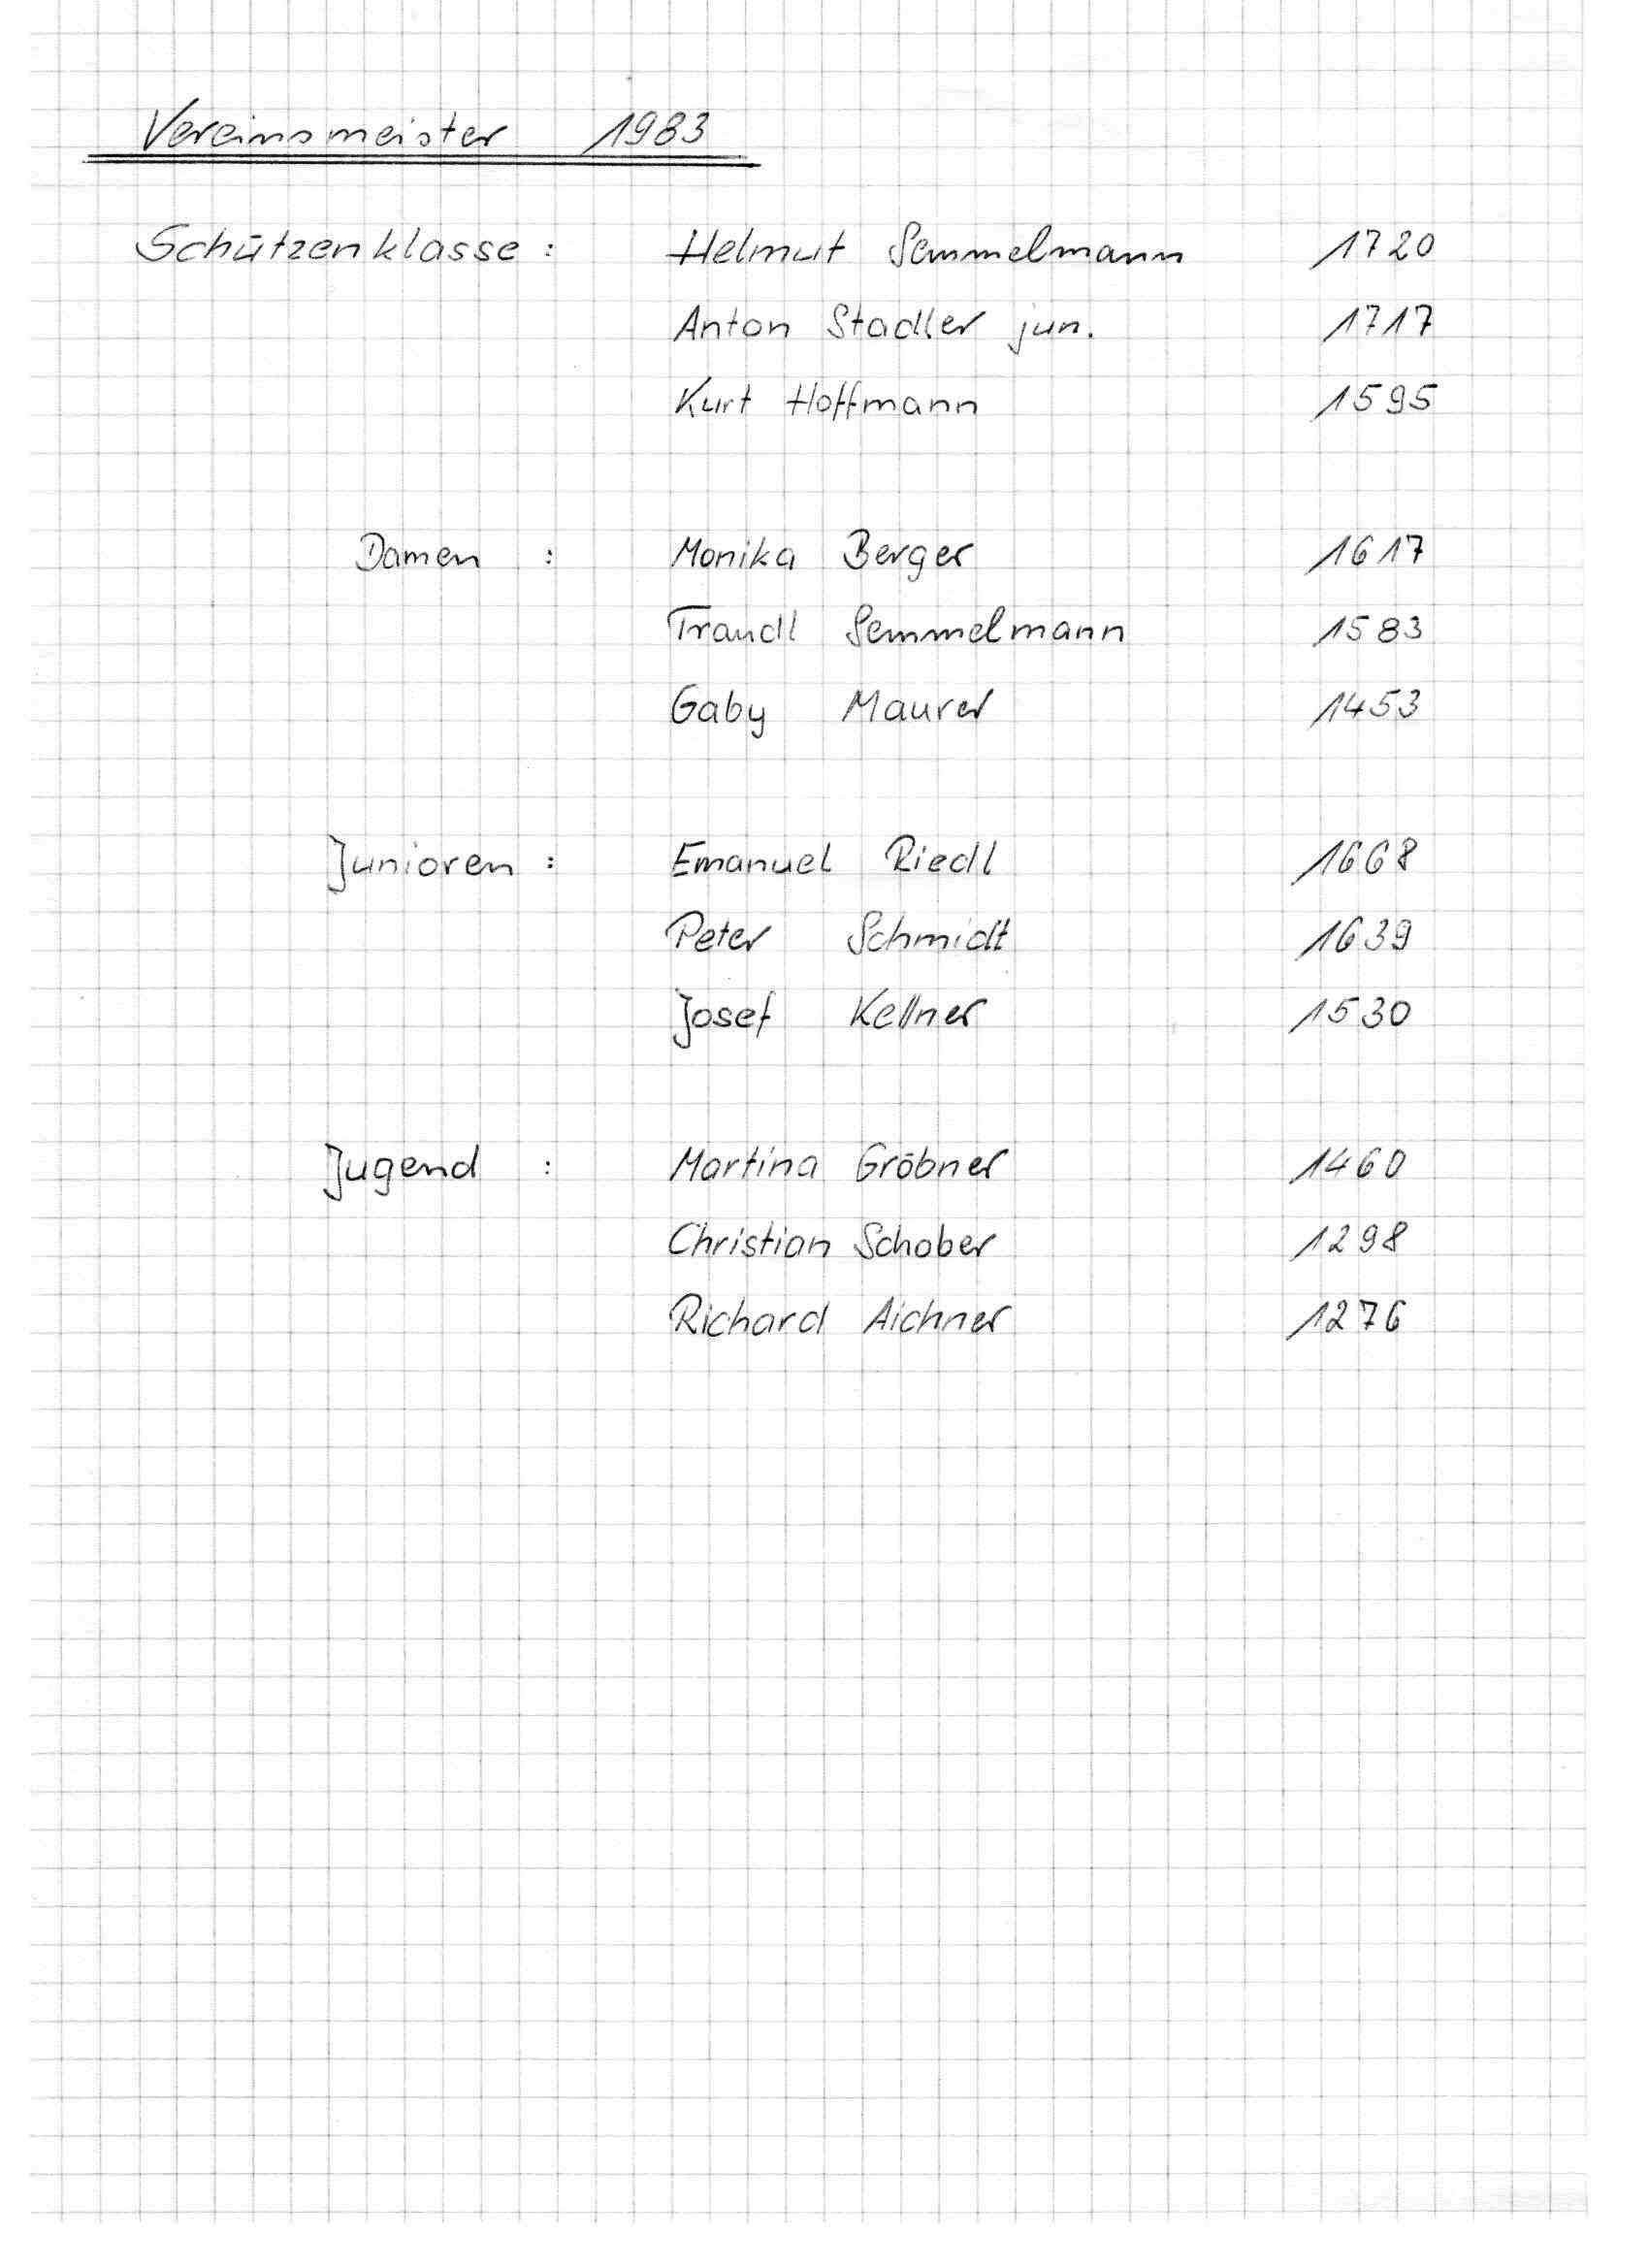 Vereinsmeister 1983
Schützenklasse : Helmut Semmelmann 1720
Anton Stadler jun. 1717
Kurt Hoffmann 1595
Damen : Monika Berger 1617
Traudl Semmelmann 1583
Gaby Maurer 1453
Junioren : Emanuel Riedl 1668
Peter Schmidt 1639
Josef Kellner 1530
Jugend : Martina Gröbner 1460
Christian Schober 1298
Richard Aichner 1276